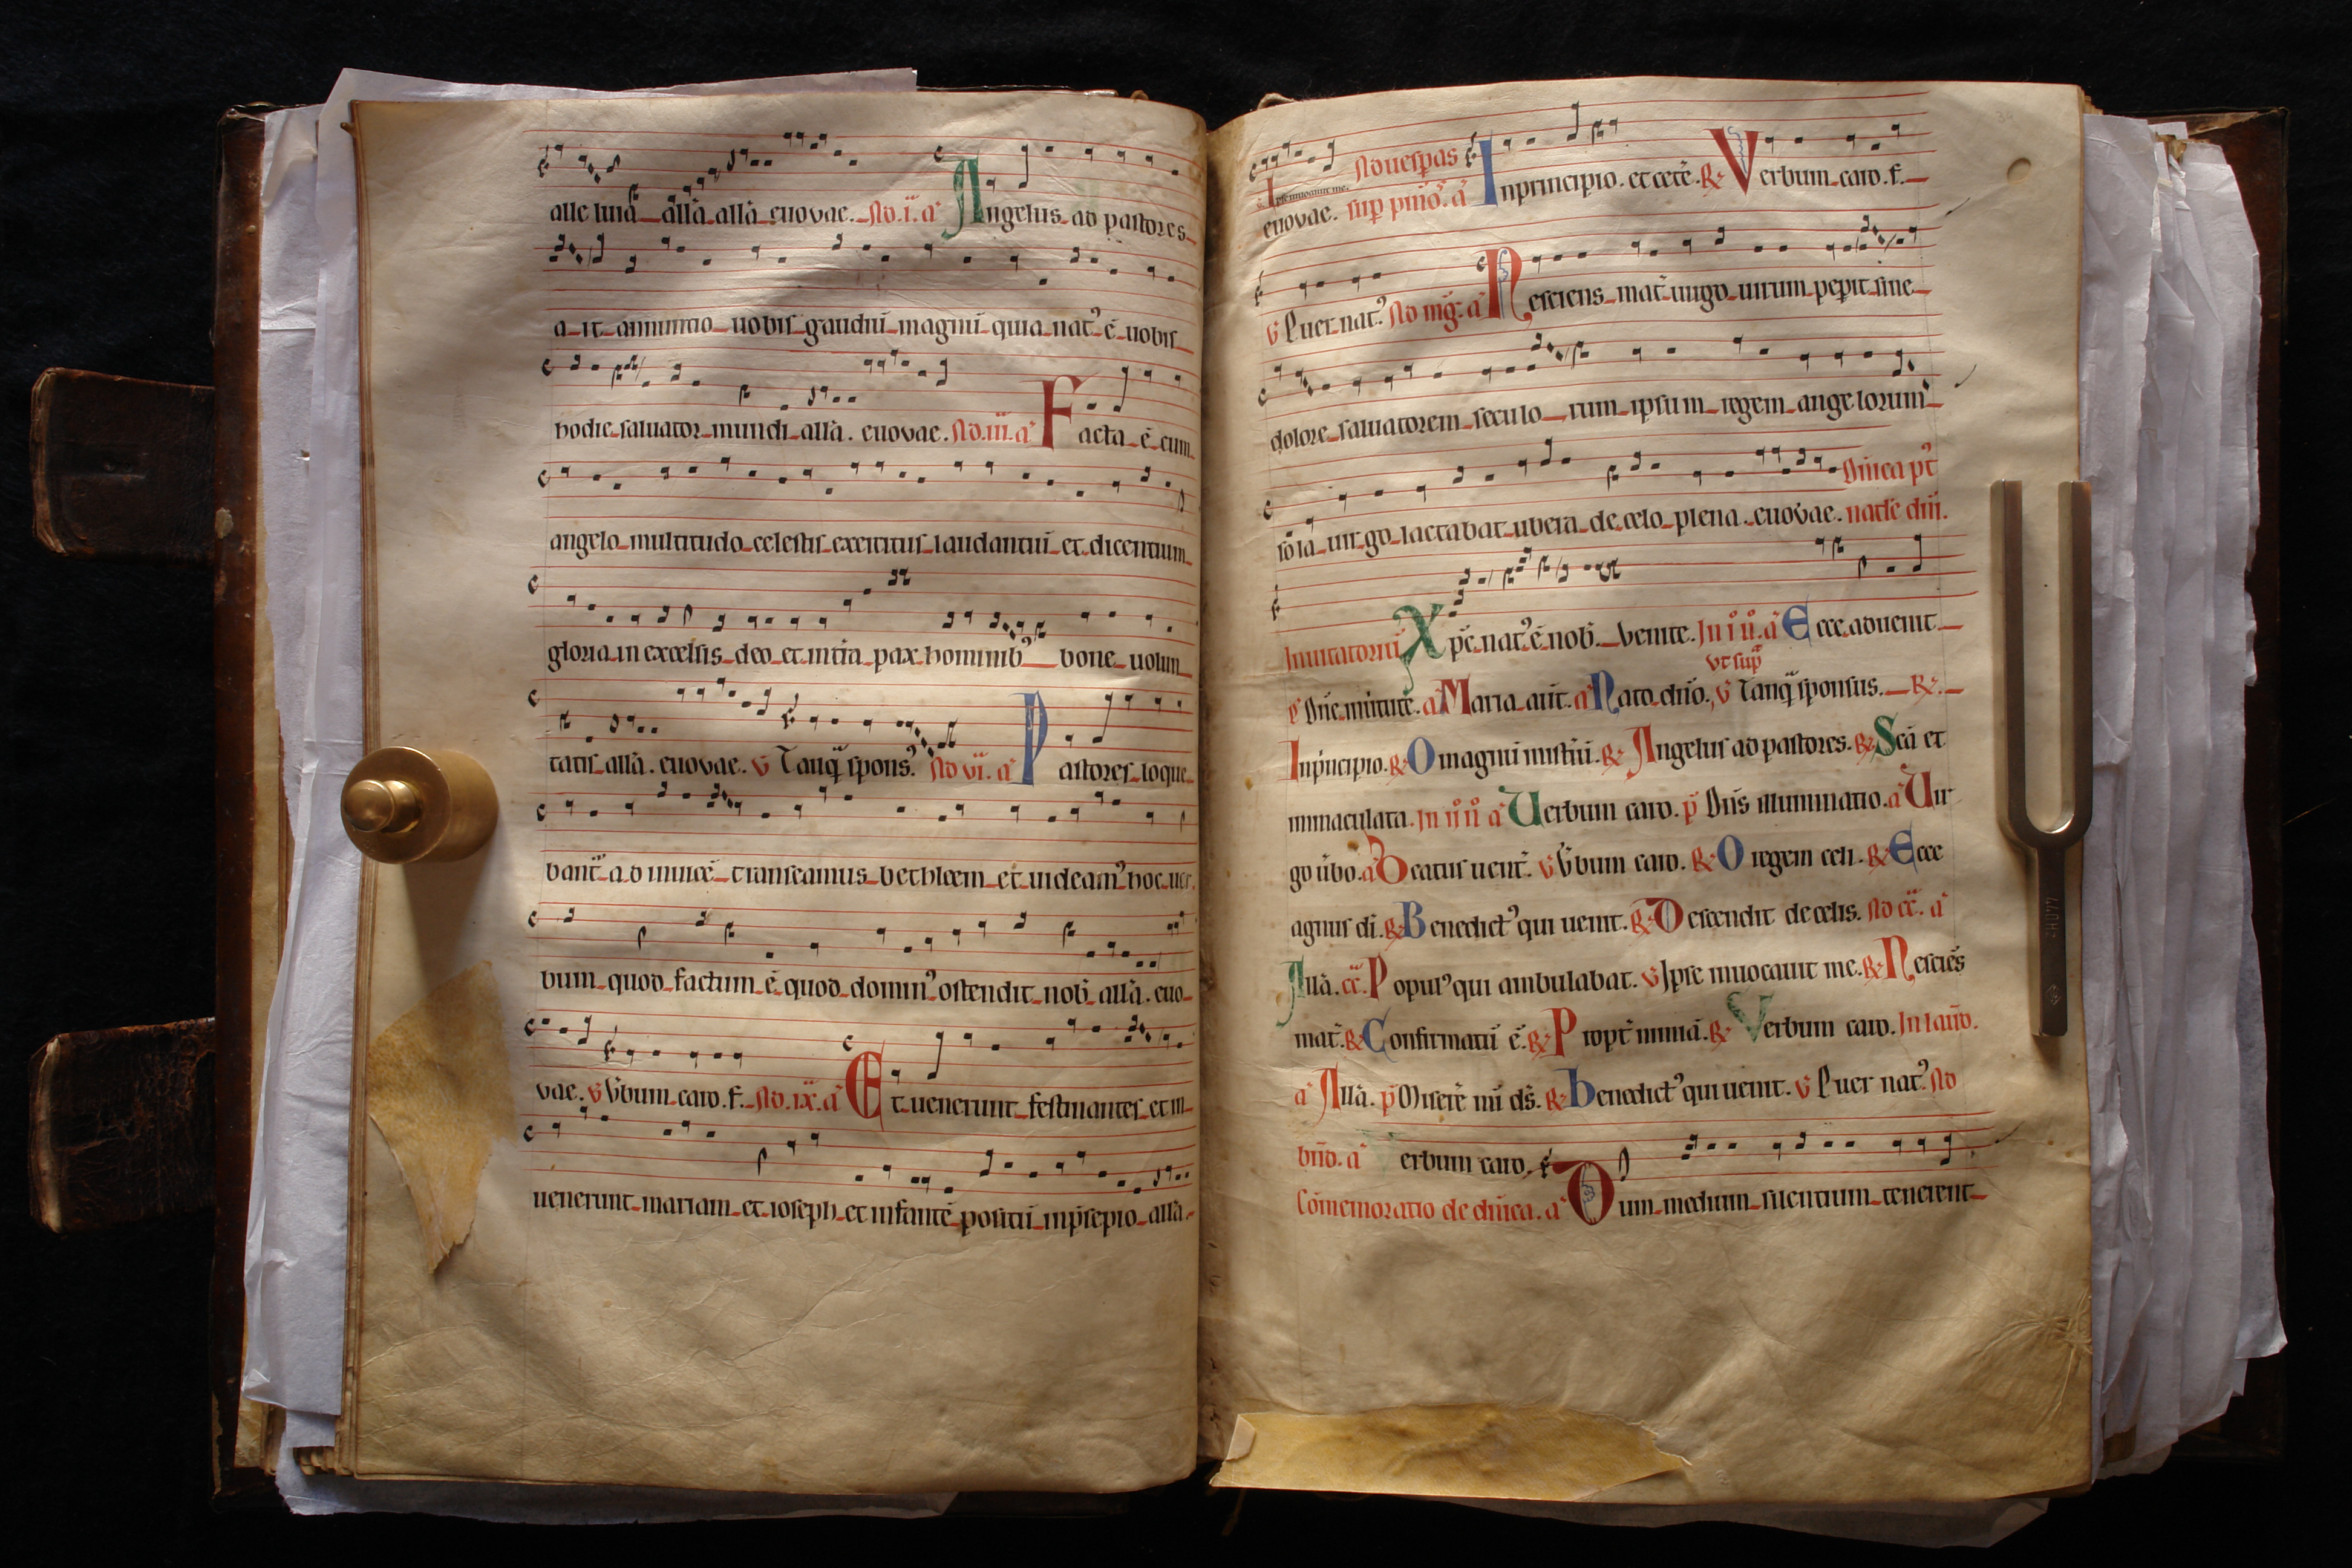 alleluia allã allã euouae. Ad .i. a Angelus ad pastores
a it annuntio uobis gaudiũ magnũ quia nat' ẽ uobis
hodie saluator mundi allã. euouae. Ad .iii. a Facta ẽ cum
angelo multitudo celestis exercitus laudantiũ et dicentium
gloria in excelsis deo et in tr̃a pax hominib' bone uolun
tatis allã. euouae. v Tanq̃ spons' Ad vi. a Pastores loque
bant̃ ad inuicẽ transeamus bethleem et uideam' hoc uer
bum quod factum ẽ quod domin' ostendit nob̃ allã. euo
vae. v Vbum caro. f. Ad .ix. a Et uenerunt festinantes et in
uenerunt mariam et ioseph et infantẽ positũ inp̃sepio allã.
Ad uesp̃as
Ipse inuocauit me.
euouae. sup a In principio. et cetẽ. R Verbum caro. f.
v Puer nat' Ad mg̃. a Nesciens mat̃ uirgo uirum pep̃it sine
dolore saluatorem seculo rum ipsum regem angelorum
so la uirgo lactabat ubera de celo plena. euouae.
Dñica p't
natle dñi.
Inuitatoriũ Xp̃c nat' ẽ nob̃. Venite. In i ñ. a Ecce aduenit
vt sup̃
p Dñe. a Maria aũt. a Nato dño. v Tanq̃ sponsus. R.
In p̃ncipio. R O magnũ mist̃iũ. R Angelus ad pastores. R Scã et
inmaculata. In ii ñ a Uerbum caro. p Dñs illuminatio. a Uir
go ũbo. a Beatus uent̃. v Vbum caro. R O regem celi. R Ecce
agnus dĩ. R Benedict' qui uenit. R Descendit de celis. Ad cc̃. a
Allã. cc̃. Popul' qui ambulabat. v Ipse inuocauit me. R Nesciẽs
mat̃. R Confirmatũ ẽ. R Propt̃ nimiã. R Verbum caro. In laud̃.
a Allã. p Miserẽ mĩ ds̃. R Benedict' qui uenit. v Puer nat' Ad
bñd. a Verbum caro.
Cõmemoratio de dñica. a Dum medium silentium tenerent
440HZ